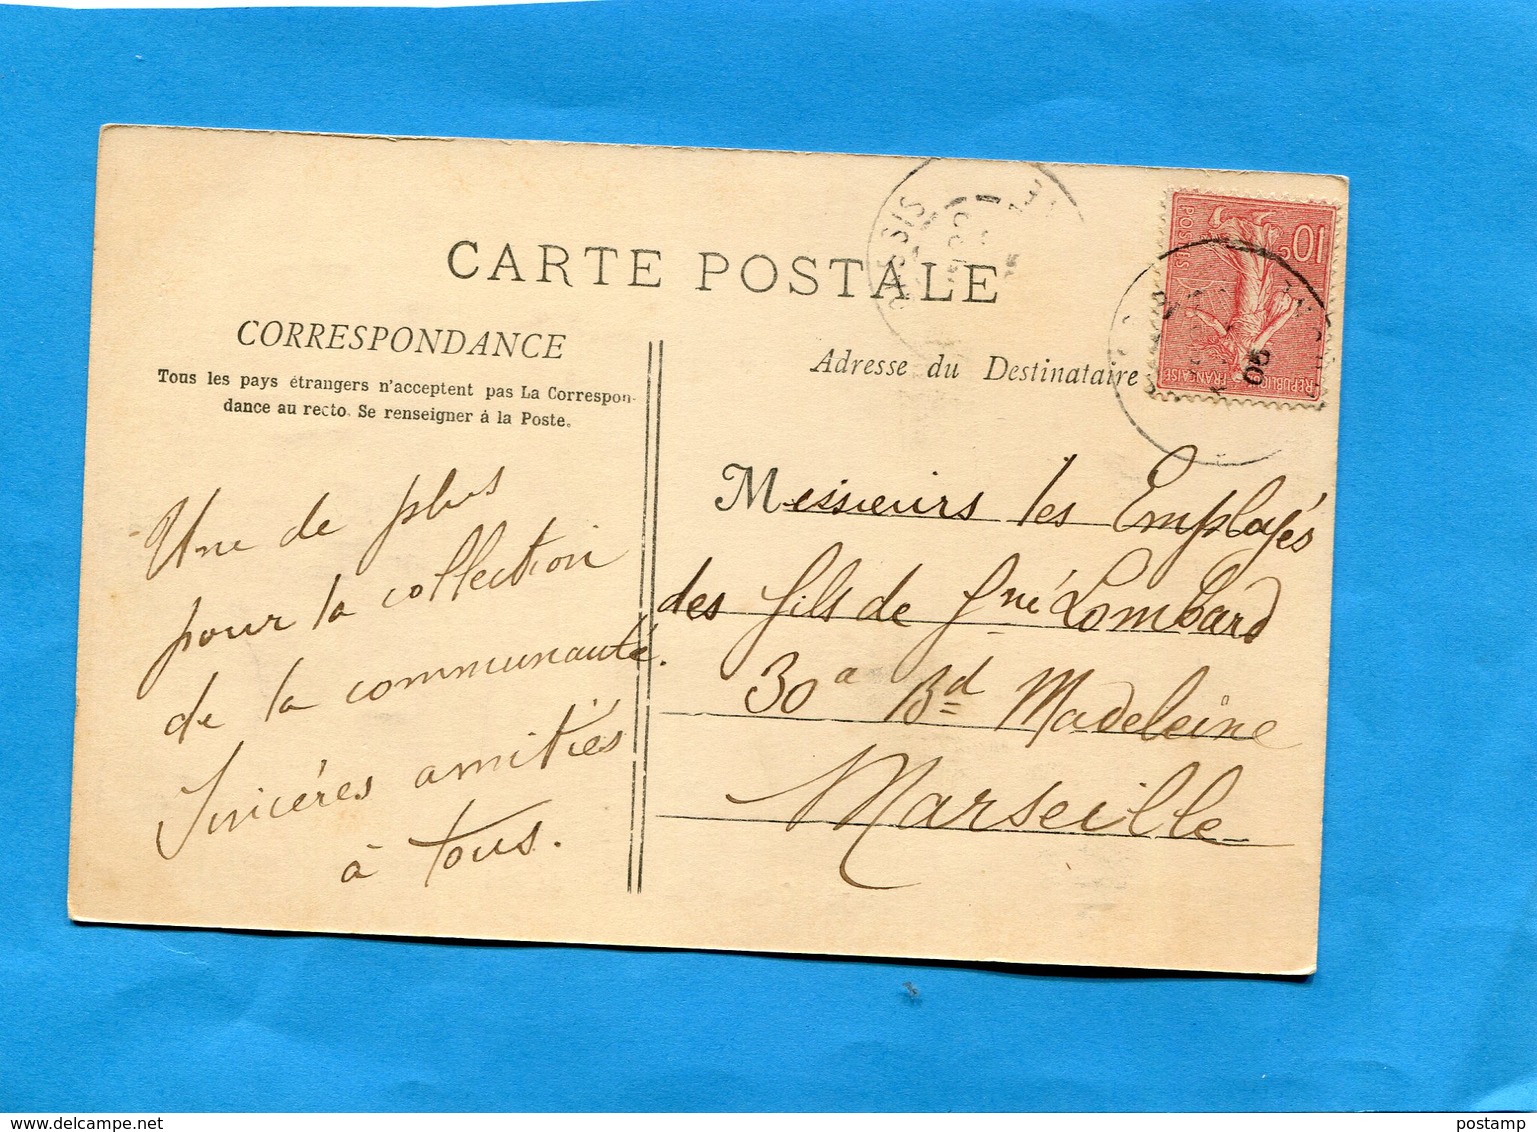 CARTE POSTALE
CORRESPONDANCE
Tous les pays étrangers n'acceptent pas La Correspon-
dance au recto. Se renseigner à la Poste.
Une de plus
pour la collection
de la communauté.
Sincéres amitiés
à tous.
Adresse du Destinataire
Messieurs les Employés
des fils de Gné Lombard
30a Bd Madeleine
Marseille
10c
POSTES
REPUBLIQUE FRANÇAISE
05
delcampe.net
postamp